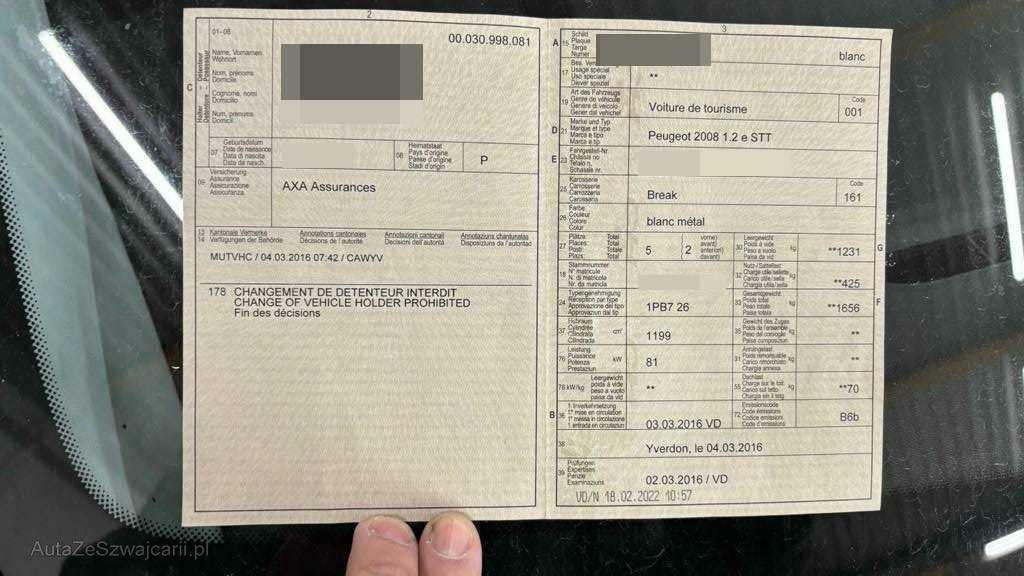 2
01-06
00.030.998.081
C
Halter - Détenteur
Detentore - Possessur
Name, Vornamen
Wohnort
Nom, prénoms
Domicile
Cognome, nomi
Domicilio
Num, prenoms
Domicil
07
Geburtsdatum
Date de naissance
Data di nascita
Data da nasch.
08
Heimatstaat
Pays d'origine
Paese d'origine
Stadi d'origin
P
09
Versicherung
Assurance
Assicurazione
Assicuranza
AXA Assurances
13 Kantonale Vermerke
14 Verfügungen der Behörde
Annotations cantonales
Décisions de l'autorité
Annotazioni cantonali
Decisioni dell'autorità
Annotaziuns chantunalas
Disposiziuns da l'autoritad
MUTVHC / 04.03.2016 07:42 / CAWYV
178 CHANGEMENT DE DETENTEUR INTERDIT
CHANGE OF VEHICLE HOLDER PROHIBITED
Fin des décisions
3
A
15
Schild
Plaque
Targa
Numer
blanc
17
Usage spécial
Uso speciale
Diever spezial
**
19
Art des Fahrzeugs
Genre de véhicule
Genere di veicolo
Gener dal vehichel
Voiture de tourisme
Code
001
D
21
Marke und Typ
Marque et type
Marca e tipo
Marca e tip
Peugeot 2008 1.2 e STT
E
23
Fahrgestell-Nr.
Châssis no
Telaio n.
Schassis nr.
25
Karosserie
Carrosserie
Carrozzeria
Carossaria
Break
Code
161
26
Farbe
Couleur
Colore
Colur
blanc métal
27
Plätze: Total
Places: Total
Posti: Totale
Plazs: Total
5
(2
vorne)
avant)
anteriori)
davant)
30
Leergewicht
Poids à vide
Peso a vuoto
Paisa da vid
kg
**1231
G
18
Stammnummer
N° matricule
N. di matricola
Nr. da matricla
32
Nutz-/Sattellast
Charge utile/sellette
Carico utile/sella
Chargia utila/sella
kg
**425
24
Typengenehmigung
Réception par type
Approvazione del tipo
Approvaziun dal tip
1PB7 26
33
Gesamtgewicht
Poids total
Peso totale
Paisa totala
kg
**1656
F
37
Hubraum
Cylindrée
Cilindrata
Cilindrada
cm³
1199
35
Gewicht des Zuges
Poids de l'ensemble
Peso del convoglio
Paisa cumposiziun
kg
**
76
Leistung
Puissance
Potenza
Prestaziun
kW
81
31
Anhängelast
Poids remorquable
Carico rimorchiato
Chargia annexa
kg
**
78 kW/kg
Leergewicht
poids à vide
peso a vuoto
paisa da vid
**
55
Dachlast
Charge sur le toit
Carico sul tetto
Chargia sin il tetg
kg
**70
B
36
1. Inverkehrsetzung
1re mise en circulation
1a messa in circolazione
1. entrada en circulaziun
03.03.2016 VD
72
Emissionscode
Code émissions
Codice emissioni
Code d'emissiuns
B6b
38
Yverdon, le 04.03.2016
39
Prüfungen
Expertises
Perizie
Examinaziuns
02.03.2016 / VD
VD/N 18.02.2022 10:57
AutaZeSzwajcarii.pl